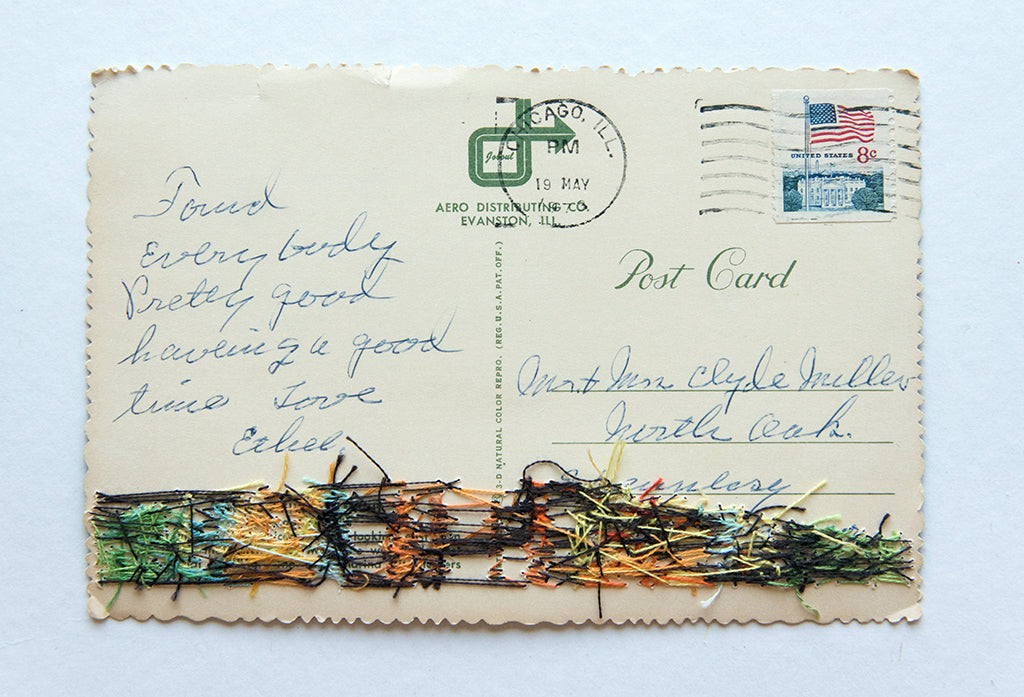 Found
Everybody
Pretty good
haveing a good
time Love
Ethel
Jobout
AERO DISTRIBUTING CO.
EVANSTON, ILL.
CHICAGO, ILL.
PM
19 MAY
UNITED STATES 8c
Post Card
3-D NATURAL COLOR REPRO. (REG. U.S.A. PAT. OFF.)
Mr & Mrs Clyde Miller
North Oak.